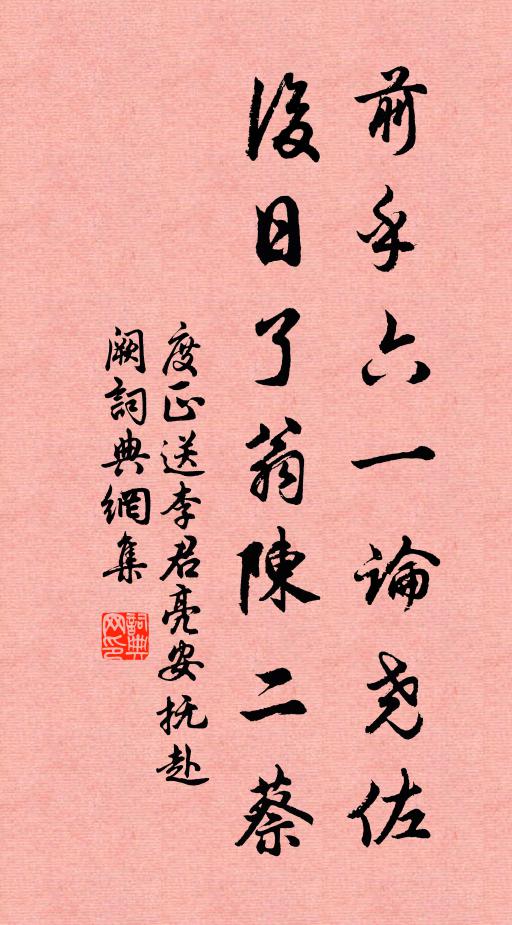 前乎六一論尧佐
後日了翁陳二蔡
度正送李君亮安抚赴
阙詞典網集
詞典网印